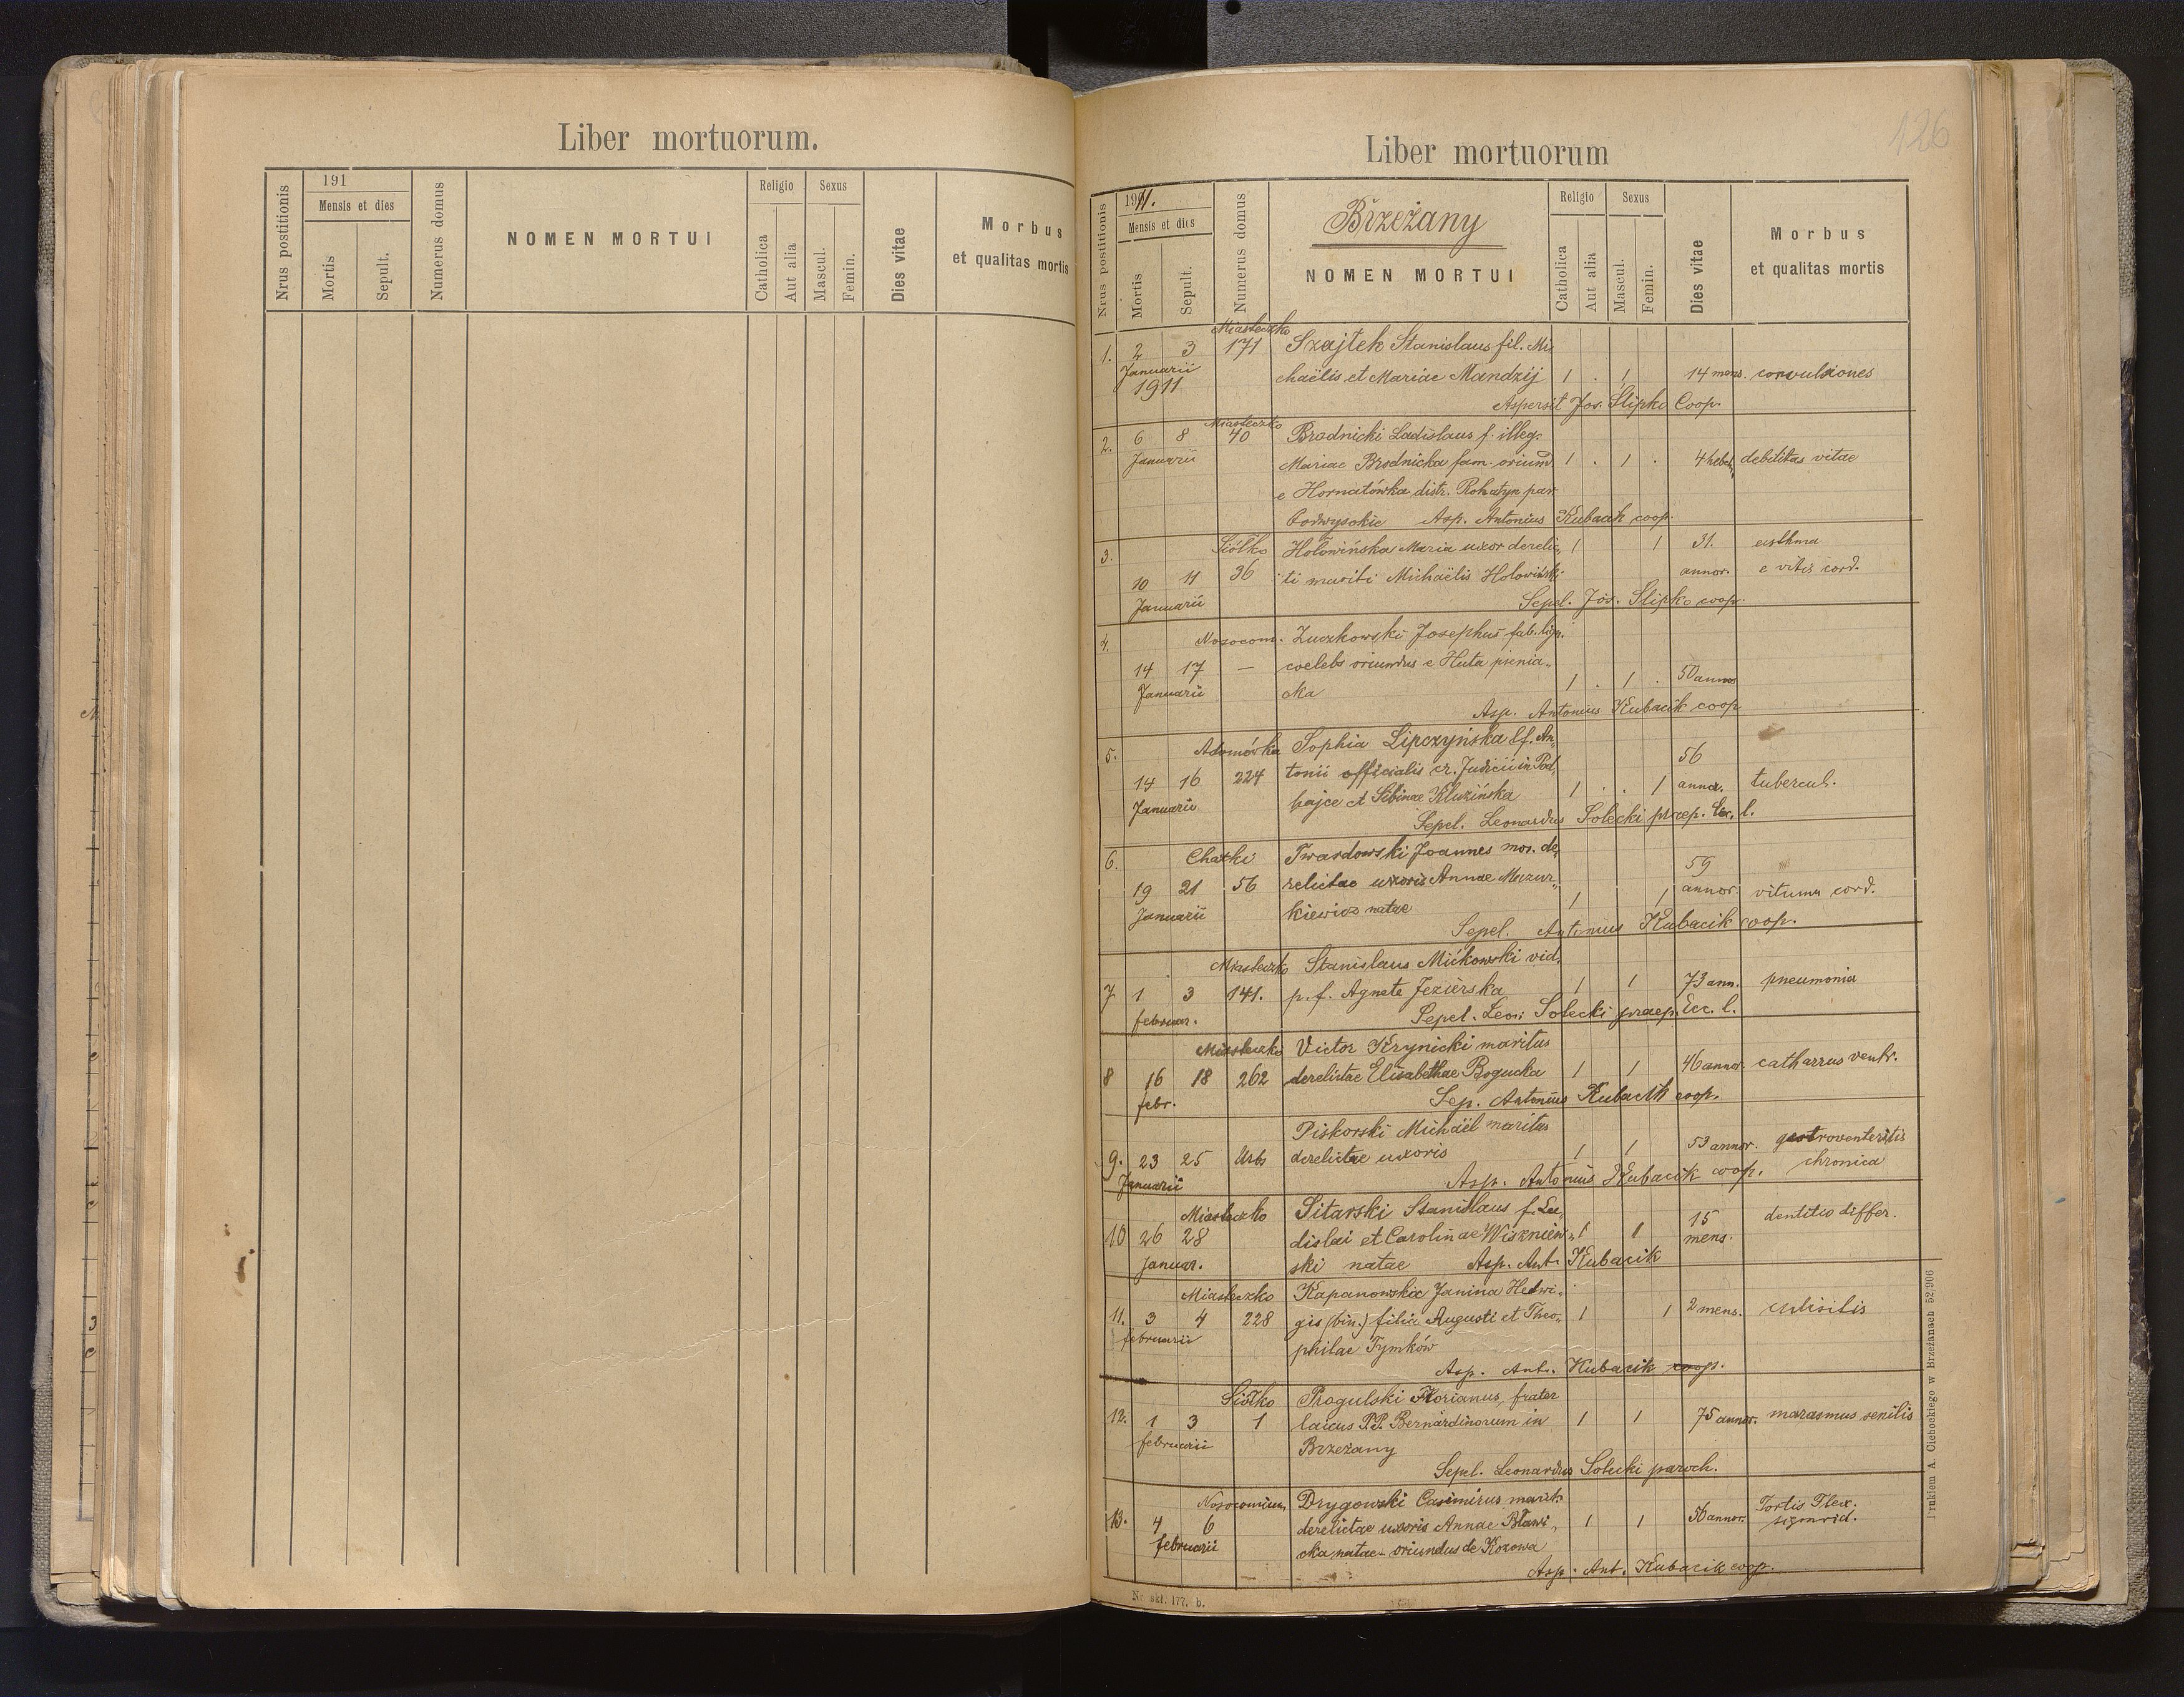 Liber mortuorum.
Nrus postitionis
191
Mensis et dies
Mortis
Sepult.
Numerus domus
NOMEN MORTUI
Religio
Catholica
Aut alia
Sexus
Mascul.
Femin.
Dies vitae
Morbus
et qualitas mortis
126
Liber mortuorum
Nrus postitionis
1911.
Mensis et dies
Mortis
Sepult.
Numerus domus
Brzeżany
NOMEN MORTUI
Religio
Catholica
Aut alia
Sexus
Mascul.
Femin.
Dies vitae
Morbus
et qualitas mortis
Miasteczko
1. 2 3 171 Szajtek Stanislaus fil. Mi
Januarii
1911 chaëlis et Mariae Mandzij 1 . 1 14 mens. convulsiones
Aspersit Jos. Slipko Coop.
Miasteczko
2. 6 8 40 Brodnicki Ladislaus f. illeg.
Januarii Mariae Brodnicka fam. oriund 1 . 1 . 4 hebd. debilitas vitae
e Hornatówka distr. Rohatyn par.
Podwysokie Asp. Antonius Kubacik coop.
3. Siółko Hołowińska Maria uxor derelic 1 1 31. asthma
10 11 36 ti mariti Michaëlis Hołowiński annor. e vitis cord.
Januarii Sepel. Jos. Slipko coop.
4. Nosocom. Zuczkowski Josephus fab. lign.
14 17 — coelebs oriundus e Huta pienia„
Januarii cka 1 . 1 . 50 annor
Asp. Antonius Kubacik coop
5. Adamówka Sophia Lipczyńska f. An„ 56
14 16 224 tonii officialis cr. Judicii in Pod„
Januarii hajce et Sibinae Kluzińska 1 . . 1 annor. tubercul.
Sepel. Leonardus Solecki praep. Ecc. l.
6. Chatki Twardowski Joannes mar. de„ 59
19 21 56 relictae uxoris Annae Mazur„ 1 1 annor. vitium cord.
Januarii kiewicz natae
Sepel. Antonius Kubacik coop.
Miasteczko Stanislaus Mićkowski vid.
7 1 3 141. p. f. Agnete Jezierska 1 1 73 ann. pneumonia
februar. Sepel. Leon. Solecki praep. Ecc. l.
Miasteczko Victor Krynicki maritus
8 16 18 262 derelictae Elisabethae Bogucka 1 1 46 annor. catharrus ventr.
febr. Sep. Antonius Kubacik coop.
Piskorski Michaël maritus
9. 23 25 Urbs derelictae uxoris 1 1 53 annor. gastroventeritis
Januarii Asp. Antonius Kubacik coop. chronica
Miasteczko Sitarski Stanislaus f. La„ 15 dentitio differ.
10 26 28 dislai et Carolinae Wiszniew„ 1 1 mens.
Januar. ski natae Asp. Ant. Kubacik
Miasteczko Kapanowska Janina Hedwi„
11. 3 4 228 gis (bin.) filia Augusti et Theo„ 1 1 2 mens.
februarii philae Tymków
Asp. Ant. Kubacik coop.
Siółko Rogulski Florianus, frater
12. 1 3 1 laicus P.P. Bernardinorum in 1 1 75 annor. marasmus senilis
februarii Brzeżany
Sepel. Leonardus Solecki paroch.
Nosocomium Drygowski Casimirus marit.
13. 4 6 derelictae uxoris Annae Bławi„ 1 1 56 annor. Tortis Flex. sigmoid.
februarii cka natae - oriundus de Kozowa
Asp. Ant. Kubacik coop.
Nr. skł. 177. b.
Drukiem A. Cichockiego w Brzeżanach 52 906